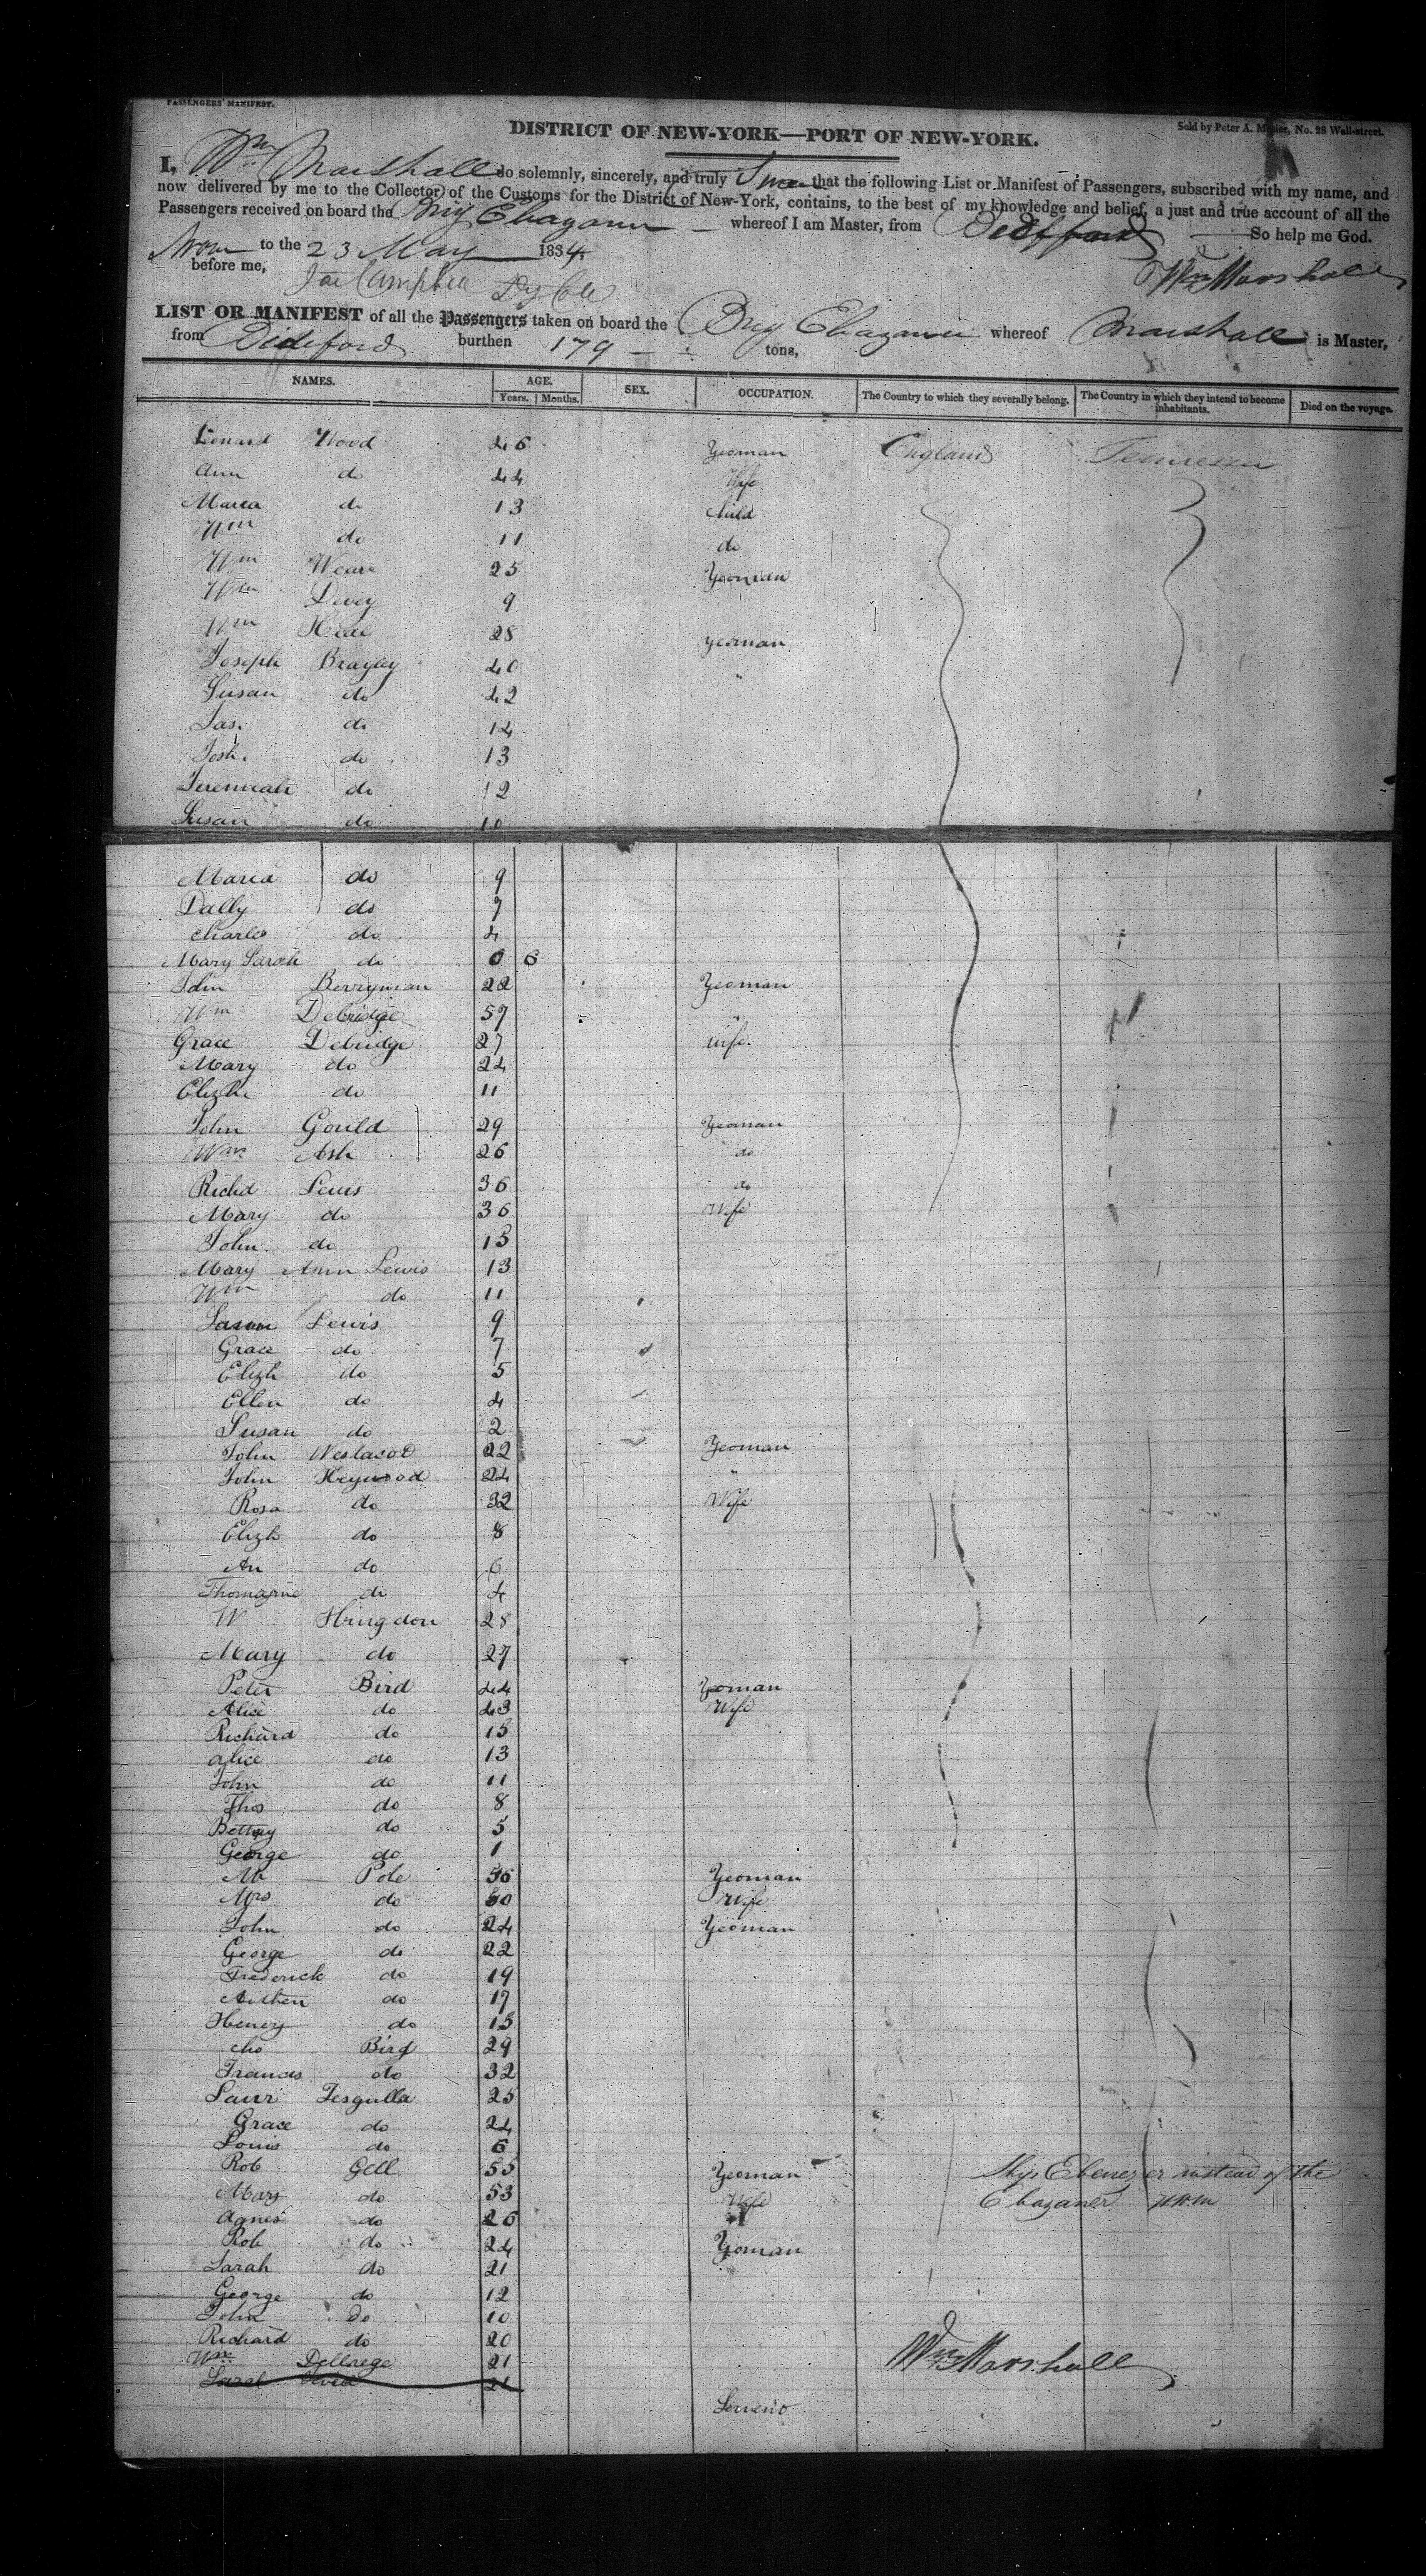 PASSENGERS' MANIFEST.
Sold by Peter A. Mesier, No. 28 Wall-street.
DISTRICT OF NEW-YORK—PORT OF NEW-YORK.
I, Wm Marshall do solemnly, sincerely, and truly Swear that the following List or Manifest of Passengers, subscribed with my name, and
now delivered by me to the Collector of the Customs for the District of New-York, contains, to the best of my knowledge and belief, a just and true account of all the
Passengers received on board the Brig Ebazaner whereof I am Master, from Bideford So help me God.
Sworn to the 23 May 1834
before me,
Wm Marshall
LIST OR MANIFEST of all the Passengers taken on board the Brig Ebazaner whereof Marshall is Master,
from Bideford burthen 179 tons,
NAMES. AGE. SEX. OCCUPATION. The Country to which they severally belong. The Country in which they intend to become inhabitants. Died on the voyage.
Years. Months.
Wood 46 Yeoman England
Ann do 44 Wife
Maria do 13 child
Wm do 11 do
Wm Weare 25 Yeoman
Wm 9
Wm 28 yeoman
Joseph Brayley 40 "
Susan do 42
Jas. do 14
Josh. do 13
Jeremiah do 12
Susan do 10
Maria do 9
Dally do 7
Charles do 4
Mary Sarah do 0 6
John Berryman 22 Yeoman
Wm Debridge 57 "
Grace Debridge 27 wife.
Mary do 24
Elizh. do 11
John Gould 29 Yeoman
Wm Ash 26 do
Richd Lewis 36 do
Mary do 36 Wife
John. do 15
Mary Ann Lewis 13
Wm do 11
Lewis 9
Grace do 7
Elizh do 5
Ellen do 4
Susan do 2
John Westacot 22 Yeoman
John Heywood 24 "
Rosa do 32 Wife
Elizh do 8
An do 6
Thomazine do 4
W Hringdon 28
Mary do 27
Peter Bird 44 Yeoman
Alice do 43 Wife
Richard do 15
Alice do 13
John do 11
Thos do 8
Bettsy do 5
George do 1
Mr Pole 56 Yeoman
Mrs do 50 Wife
John do 24 Yeoman
George do 22
Frederick do 19
do 17
Henery do 15
Bird 29
Frances do 32
Tesgulla 25
Grace do 24
Louis do 6
Rob Gell 55 Yeoman
Mary do 53 Wife
Agnes do 26
Rob do 24 Yoman
Sarah do 21
George do 12
John Do 10
Richard do 20
Wm Dellrege 21
Sarah 21
Ship Ebenezer instead of the
Ebazaner WM
Wm Marshall